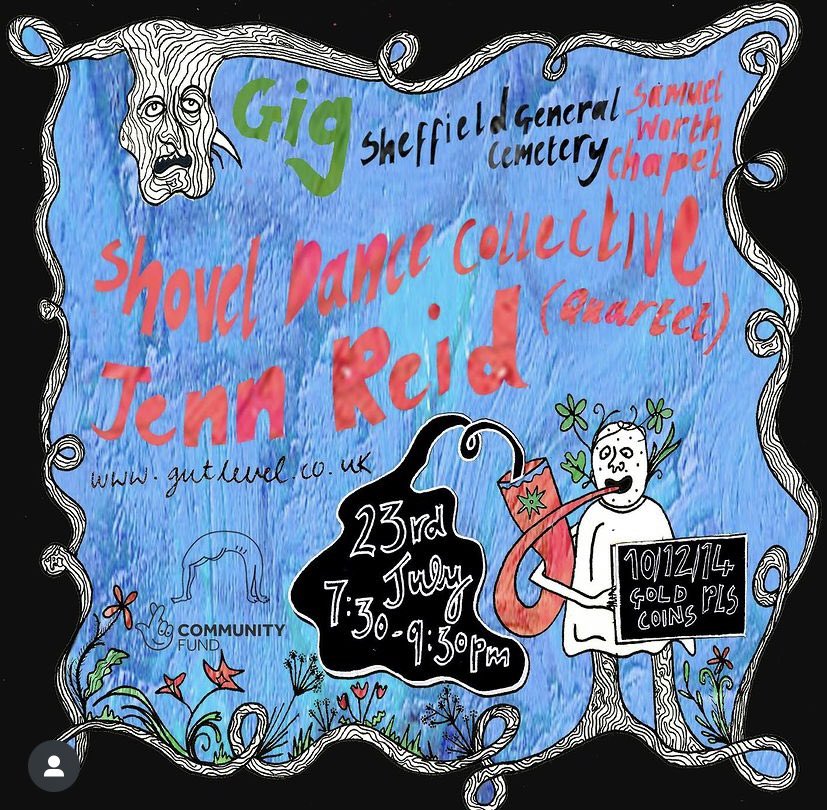 Gig
Sheffield General
Cemetery
Samuel
Worth
Chapel
Shovel Dance Collective
(Quartet)
Jenn Reid
www.gutlevel.co.uk
23rd
July
7:30-9:30pm
10/12/14
GOLD PLS
COINS
COMMUNITY
FUND